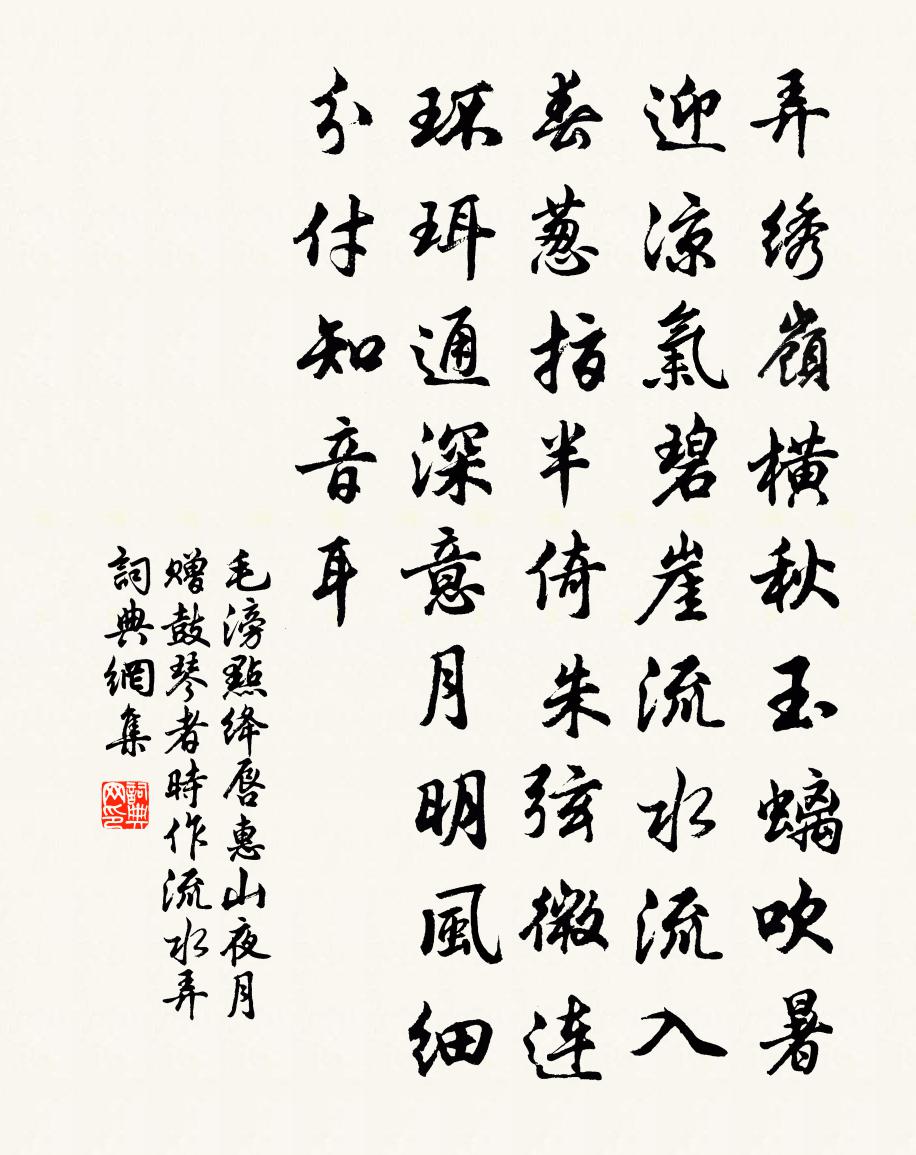 弄绣嶺横秋玉螭吹暑
迎涼氣碧崖流水流入
春葱指半倚朱弦微连
环珥通深意月明風细
分付知音耳
毛滂點绛唇惠山夜月
赠鼓琴者時作流水弄
詞典網集
詞典
网印